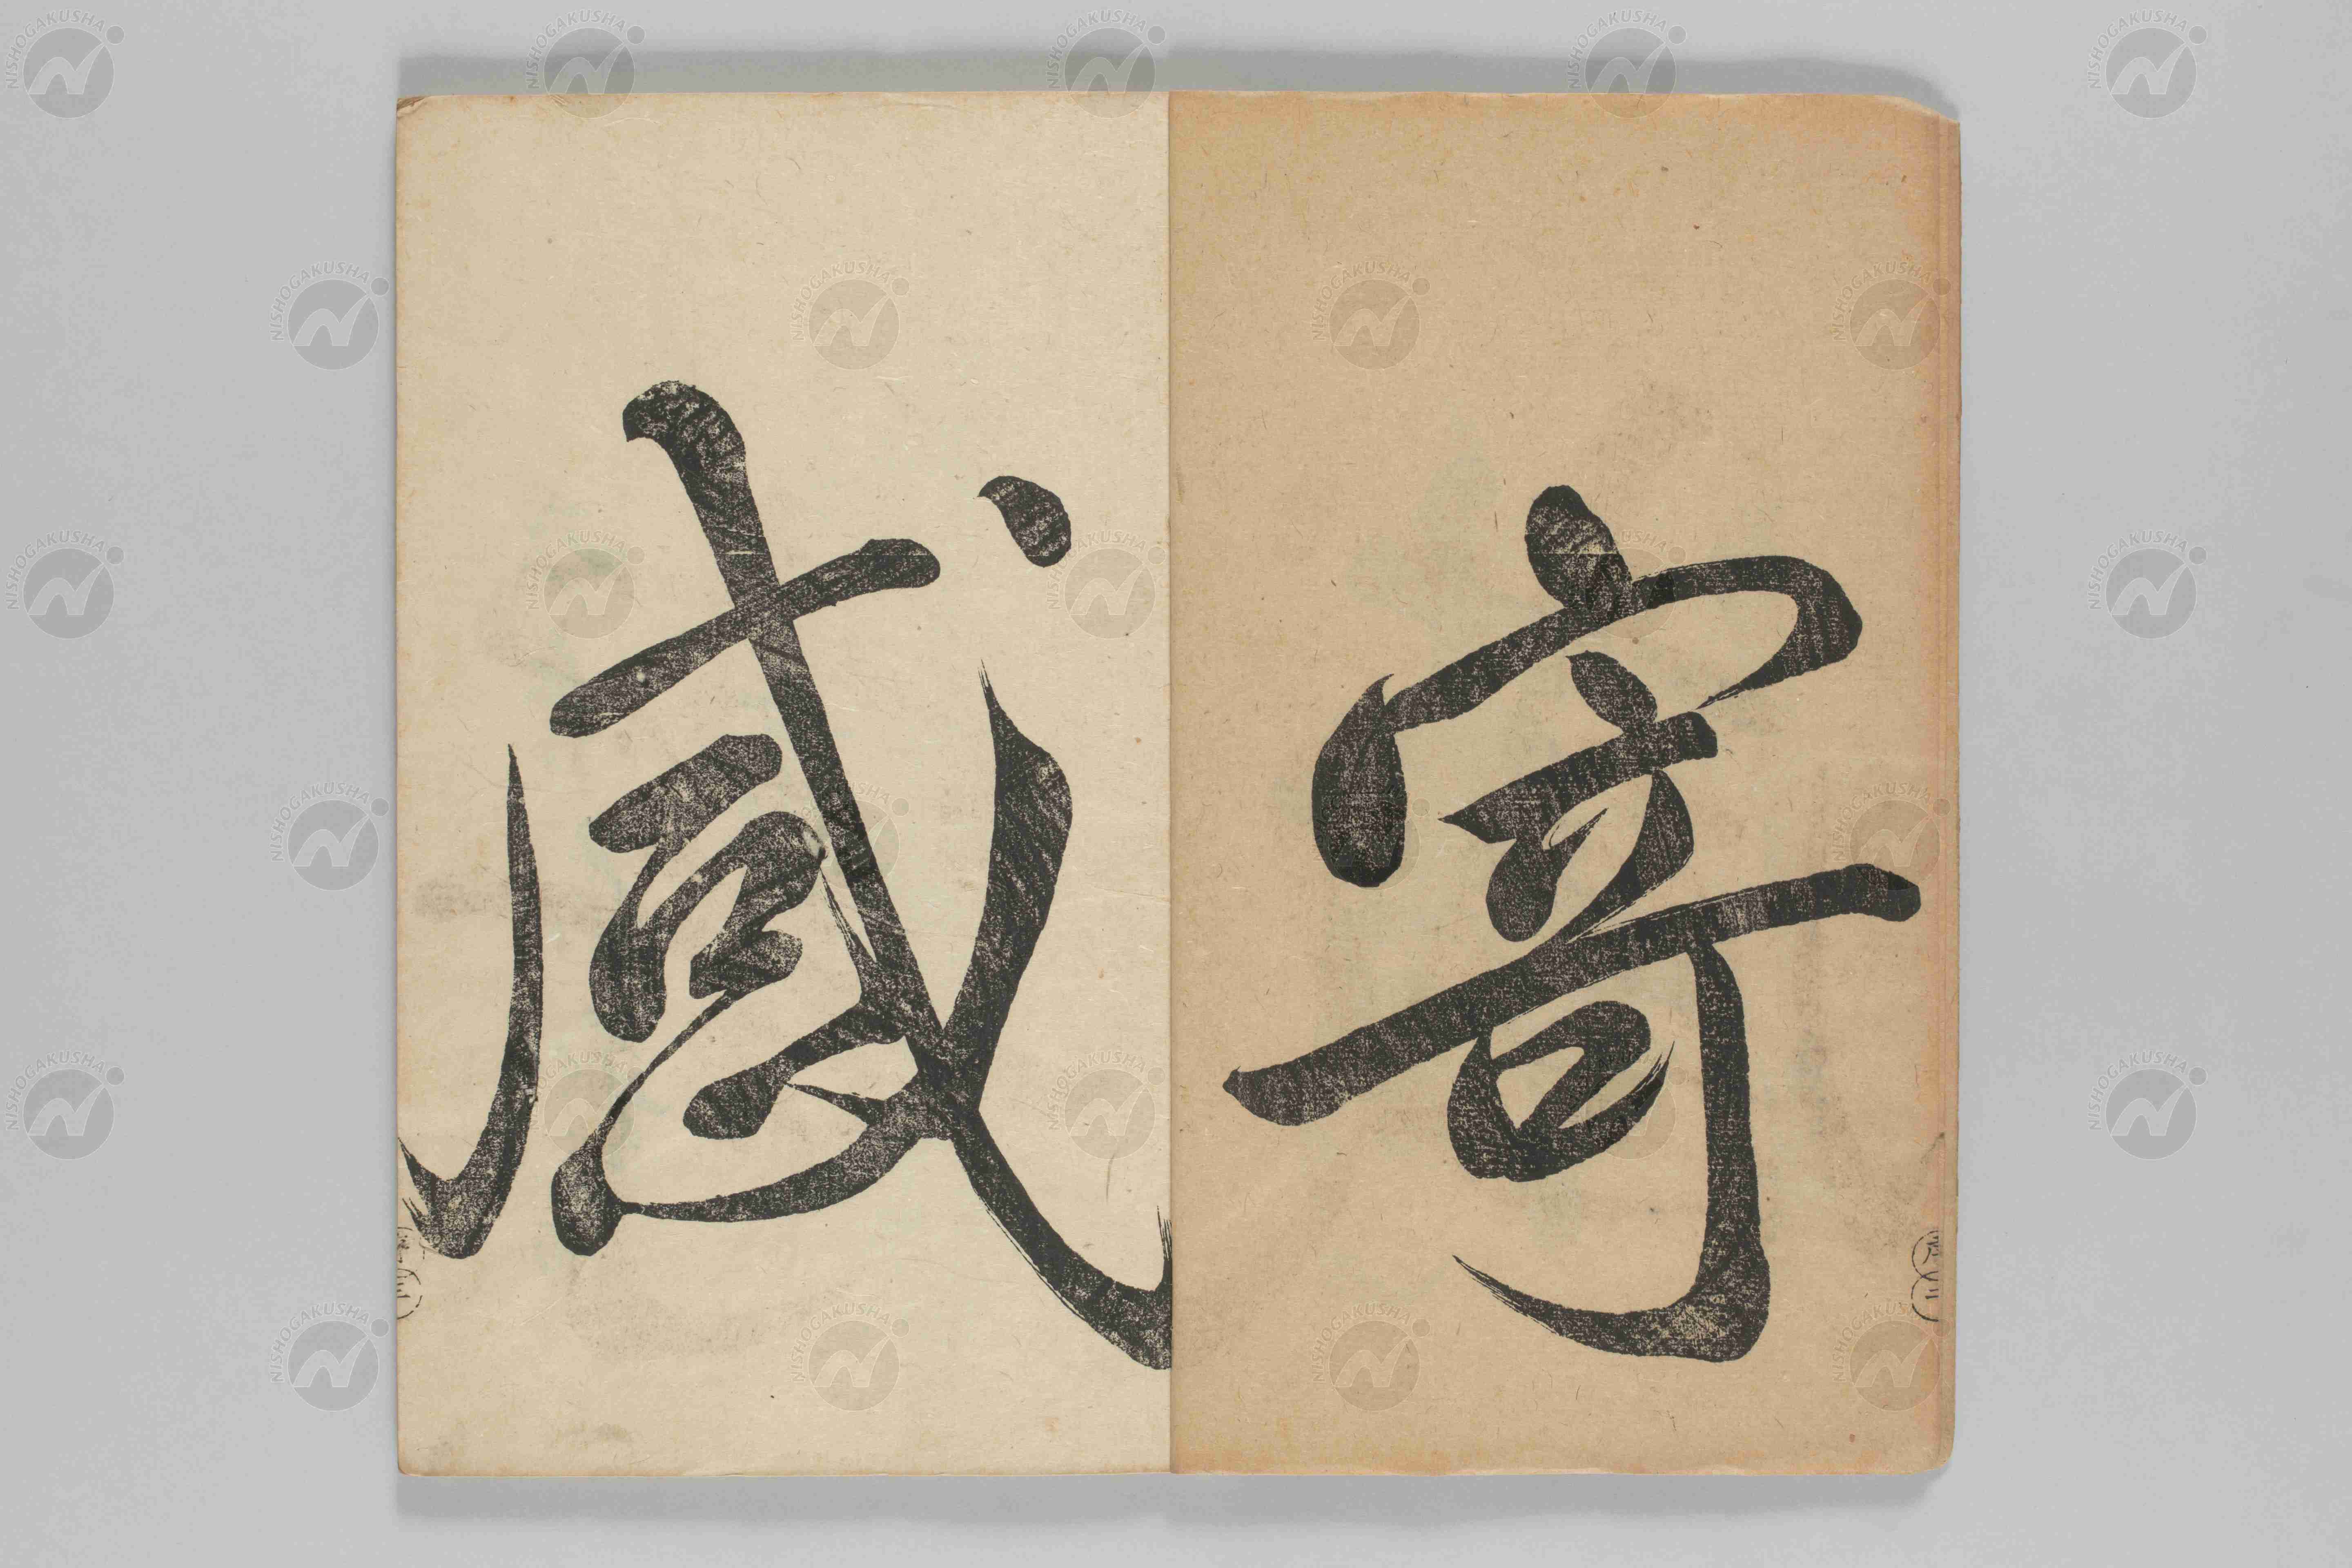 寄
感
NISHOGAKUSHA